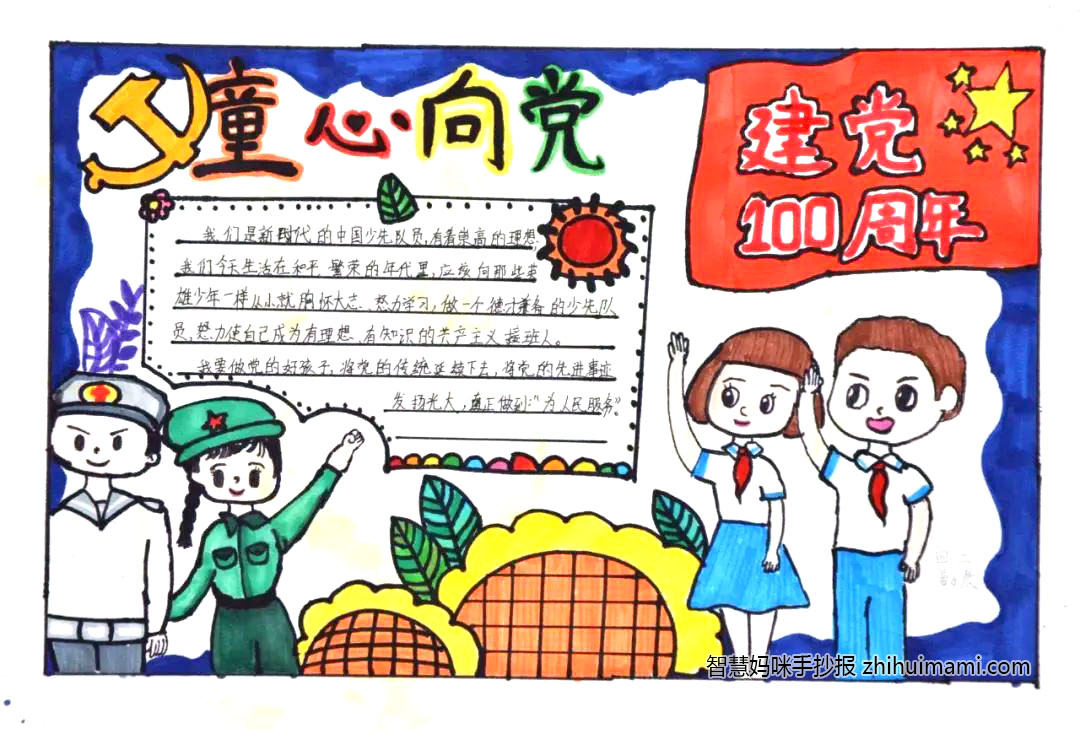 童心向党
建党
100周年
我们是新时代的中国少先队员,有着崇高的理想,
我们今天生活在和平、繁荣的年代里,应该向那些英
雄少年一样从小就胸怀大志、努力学习,做一个德才兼备的少先队
员,努力使自己成为有理想、有知识的共产主义接班人。
我要做党的好孩子,将党的传统延续下去,将党的先进事迹
发扬光大,真正做到:“为人民服务”。
四二
智慧妈咪手抄报 zhihuimami.com